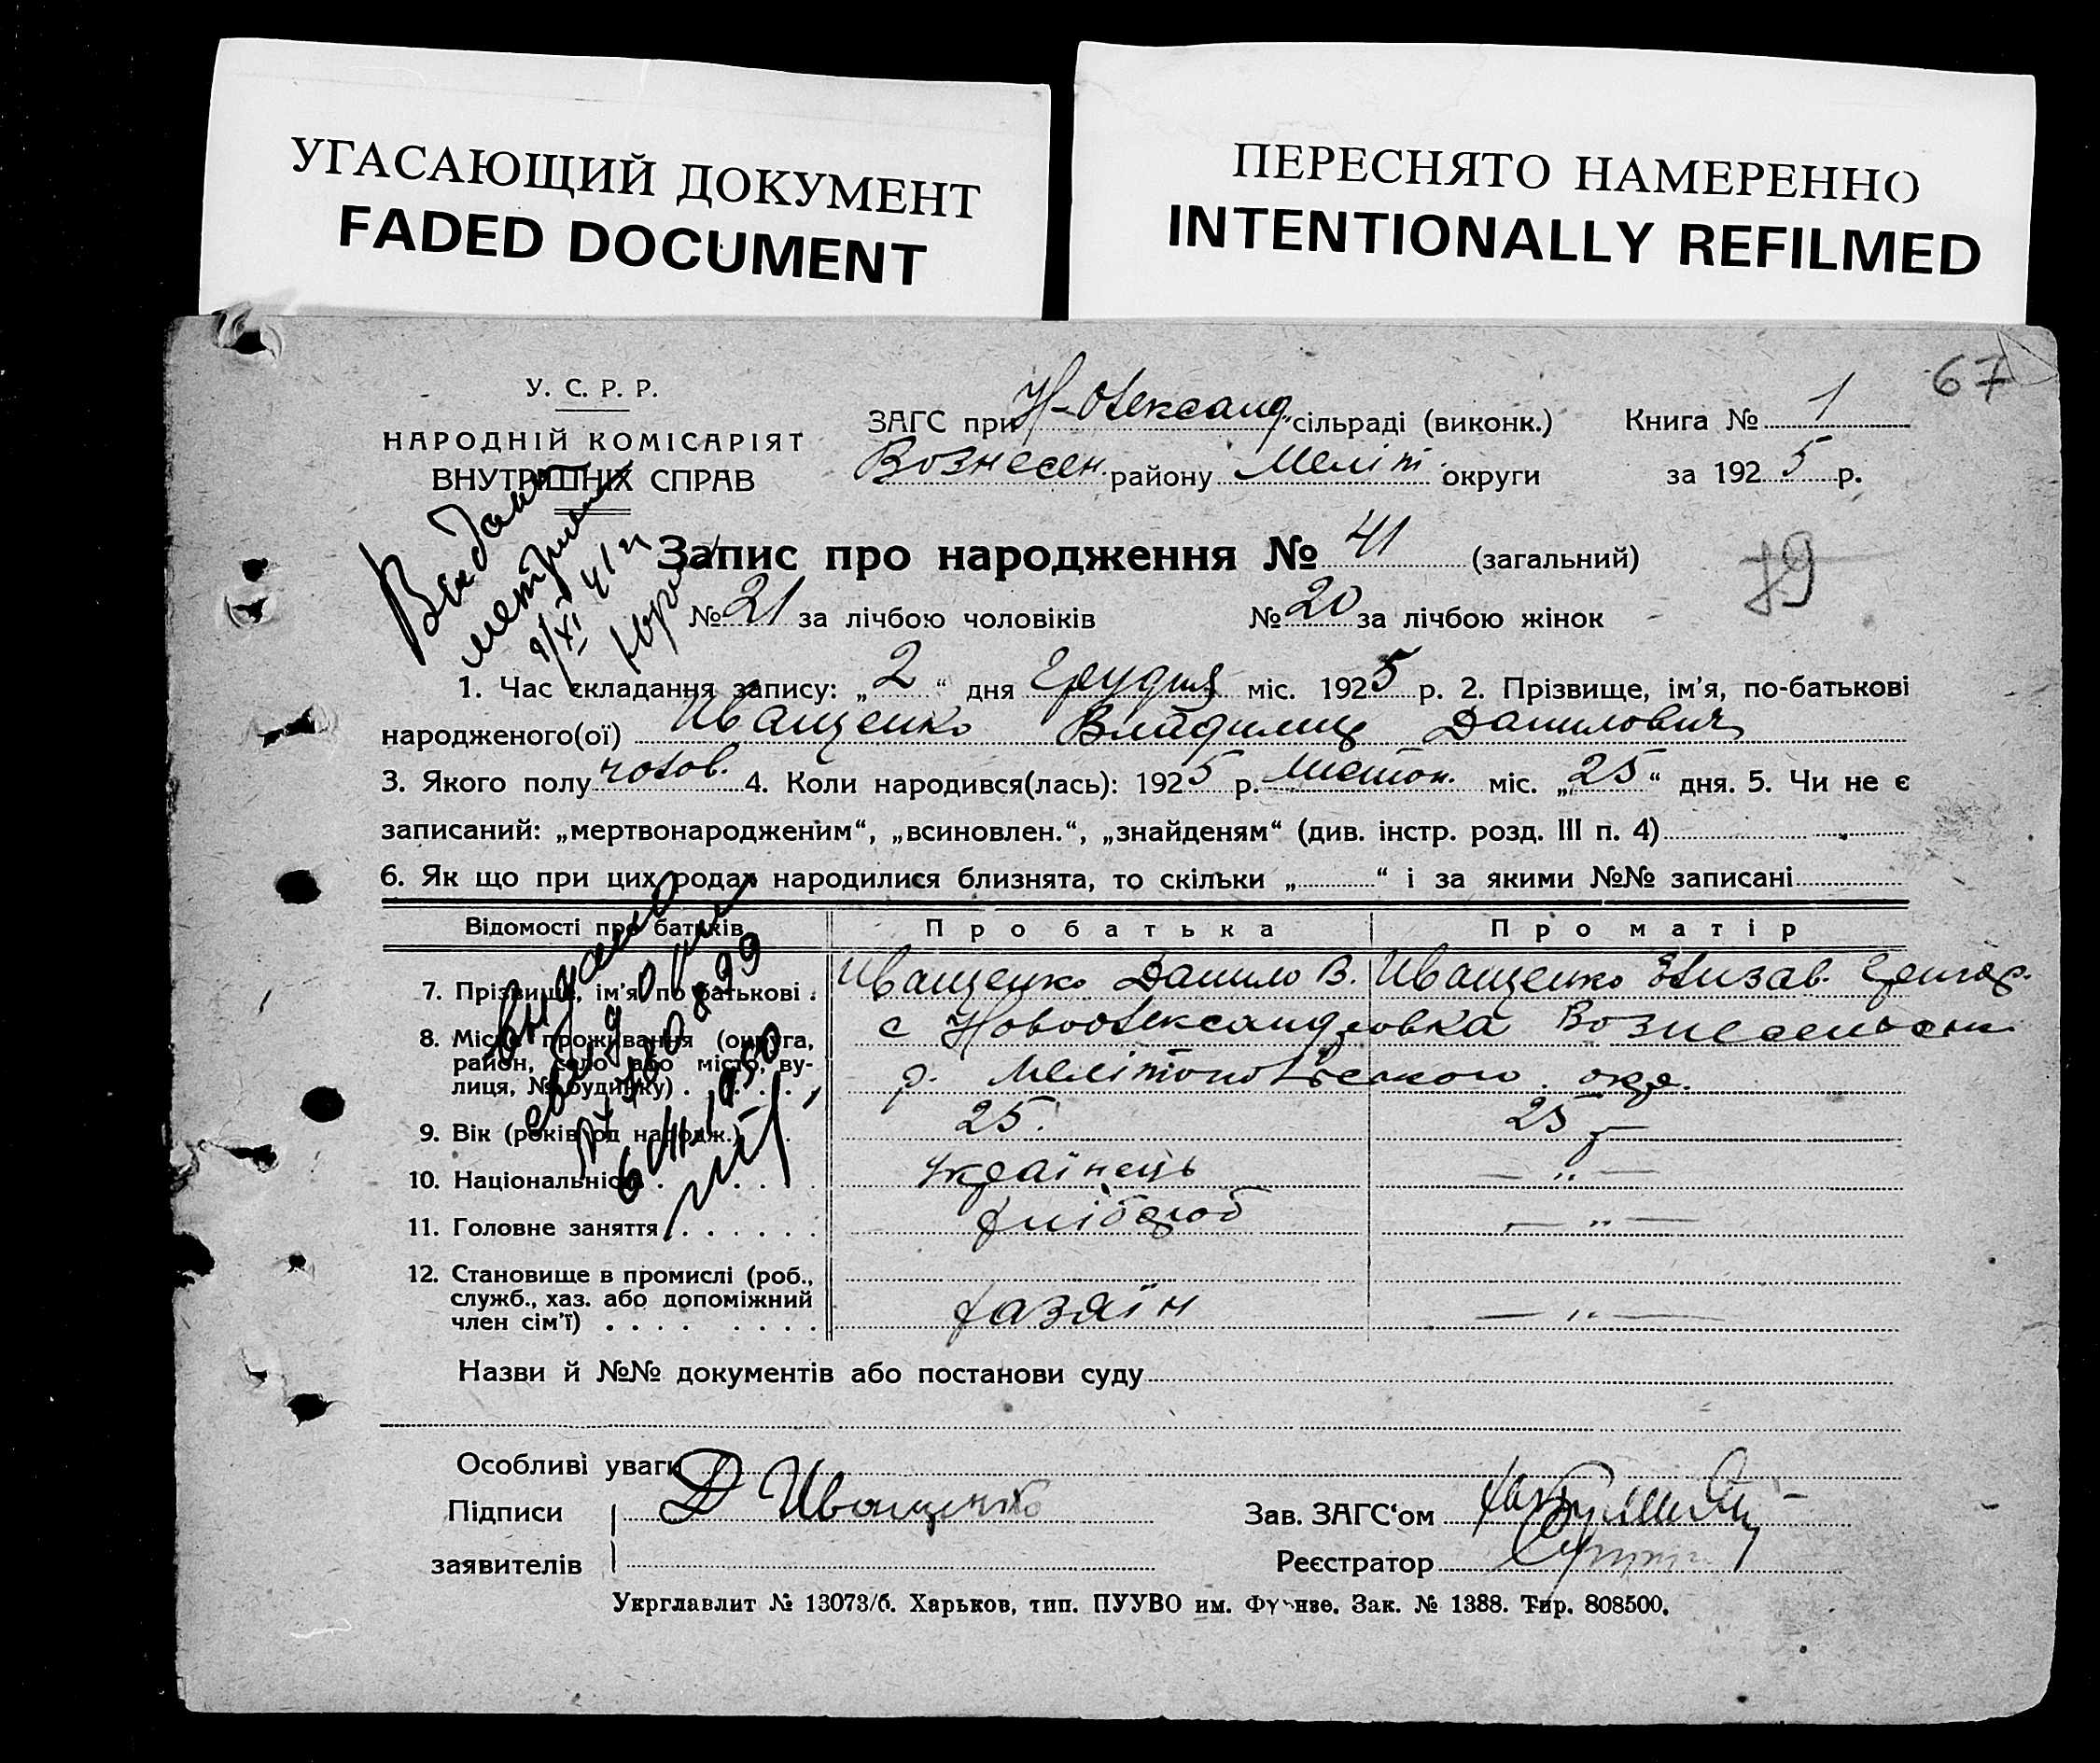 УГАСАЮЩИЙ ДОКУМЕНТ
FADED DOCUMENT
ПЕРЕСНЯТО НАМЕРЕННО
INTENTIONALLY REFILMED
67
У. С. Р. Р.
НАРОДНІЙ КОМІСАРІЯТ
ВНУТРІШНІХ СПРАВ
ЗАГС при Н-Олександ. сільраді (виконк.) Книга № 1
Вознесен. району Меліт. округи за 1925 р.
Видано
9/XI 41 г
Запис про народження № 41 (загальний)
79
№ 21 за лічбою чоловіків № 20 за лічбою жінок
1. Час складання запису: „2“ дня Грудня міс. 1925 р. 2. Прізвище, ім'я, по-батькові
народженого(ої) Иващенко Владимир Данилович
3. Якого полу чолов. 4. Коли народився(лась): 1925 р. Листоп. міс. „25“ дня. 5. Чи не є
записаний: „мертвонародженим“, „всиновлен.“, „знайденям“ (див. інстр. розд. III п. 4)
6. Як що при цих родах народилися близнята, то скільки „ “ і за якими №№ записані
Відомості про батьків Про батька Про матір
7. Прізвище, ім'я, по батькові . Иващенко Данило В. Иващенко Елизав. Григор.
8. Місце проживання (округа, с Новоолександровка Вознесенськ
район, село або місто, ву-
лиця, № будинку) . . . . . р. Мелітопольського окр.
9. Вік (років од народж.) . 25. 25
10. Національність . . . . . Українець — „ —
11. Головне заняття . . . . . . хлібороб — „ —
12. Становище в промислі (роб.,
служб., хаз. або допоміжний
член сім'ї) . . . . . . . . хазяїн — „ —
Назви й №№ документів або постанови суду
Особливі уваги
Підписи Д Иващенко Зав. ЗАГС‘ом
заявителів Реєстратор
Укрглавлит № 13073/б. Харьков, тип. ПУУВО им. Фрунзе. Зак. № 1388. Тир. 808500.